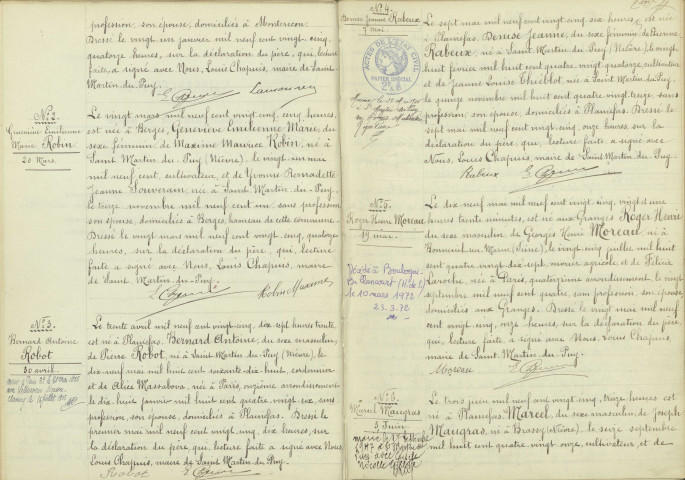 profession, son épouse, domiciliés à Montcreçon.
Dressé le vingt un janvier mil neuf cent vingt-cinq,
quatorze heures, sur la déclaration du père, qui, lecture
faite, a signé avec Nous, Louis Chapuis, maire de Saint
Martin-du-Puy.
N° 2.
Geneviève Emilienne
Marie Robin
20 Mars.
Le vingt mars mil neuf cent vingt-cinq, cinq heures,
est née à Berges, Geneviève Emilienne Marie, du
sexe féminin de Maxime Maurice Robin, né à
Saint Martin-du-Puy (Nièvre), le vingt-un mai
mil neuf cent, cultivateur, et de Yvonne Bernadette
Jeanne Souverain, née à Saint Martin-du-Puy,
le treize novembre mil neuf cent un, sans profession
son épouse, domiciliés à Berges, hameau de cette commune.
Dressé le vingt mars mil neuf cent vingt-cinq, quatorze
heures, sur la déclaration du père, qui, lecture
faite a signé avec Nous, Louis Chapuis, maire
de Saint Martin-du-Puy.
Robin Maxime
N° 3.
Bernard Antoine
Robot
30 avril.
Le trente avril mil neuf cent vingt-cinq, dix sept heures trente,
est né à Plainefas, Bernard Antoine, du sexe masculin,
de Pierre Robot, né à Saint Martin-du-Puy (Nièvre), le
dix-neuf mai mil huit cent soixante-dix huit, cordonnier
et de Alice Massabova, née à Paris, onzième arrondissement
le dix-huit janvier mil huit cent quatre vingt-six, sans
profession, son épouse, domiciliés à Plainefas. Dressé le
premier mai mil neuf cent vingt-cinq, dix heures, sur
la déclaration du père, qui lecture faite a signé avec Nous,
Louis Chapuis, maire de Saint Martin du Puy.
Robot
N° 4.
Denise Jeanne Rabeux
7 mai.
ACTES DE L'ETAT CIVIL
PAPIER SPÉCIAL
Le sept mai mil neuf cent vingt-cinq, six heures, est née
à Plainefas Denise Jeanne, du sexe féminin de Etienne
Rabeux, né à Saint Martin-du-Puy (Nièvre), le vingt
huit février mil huit cent quatre vingt-quatorze, cultivateur
et de Jeanne Louise Thiéblot, née à Saint Martin du Puy
le quinze novembre mil huit cent quatre vingt-treize, sans
profession, son épouse, domiciliés à Plainefas. Dressé le
sept mai mil neuf cent vingt-cinq, onze heures, sur la
déclaration du père, qui, lecture faite a signé avec
Nous, Louis Chapuis, maire de Saint-Martin-du-Puy.
Rabeux
N° 5.
Roger Henri Moreau
19 mai.
Décédé à Boulogne-
Billancourt (H. de S)
le 10 mars 1972
23.3.72
Le dix neuf mai mil neuf cent vingt-cinq, vingt et une
heures trente minutes, est né aux Granges Roger Henri
du sexe masculin de Georges Henri Moreau, né à
Bonneuil-sur-Marne (Seine), le vingt-cinq juillet mil huit
cent quatre vingt dix-sept, ouvrier agricole et de
Laroche, née à Paris, quatorzième arrondissement, le vingt
septembre mil neuf cent quatre, sans profession, son épouse,
domiciliés aux Granges. Dressé le vingt mai mil neuf
cent vingt-cinq, onze heures, sur la déclaration du père,
qui, lecture faite a signé avec Nous, Louis Chapuis,
maire de Saint-Martin-du-Puy.
Moreau
N° 6.
Marcel Maugras
3 Juin
Le trois juin mil neuf cent vingt-cinq, treize heures, est
né à Plainefas, Marcel, du sexe masculin de Joseph
Maugras, né à Brassy (Nièvre), le seize septembre
mil huit cent quatre vingt onze, cultivateur, et de